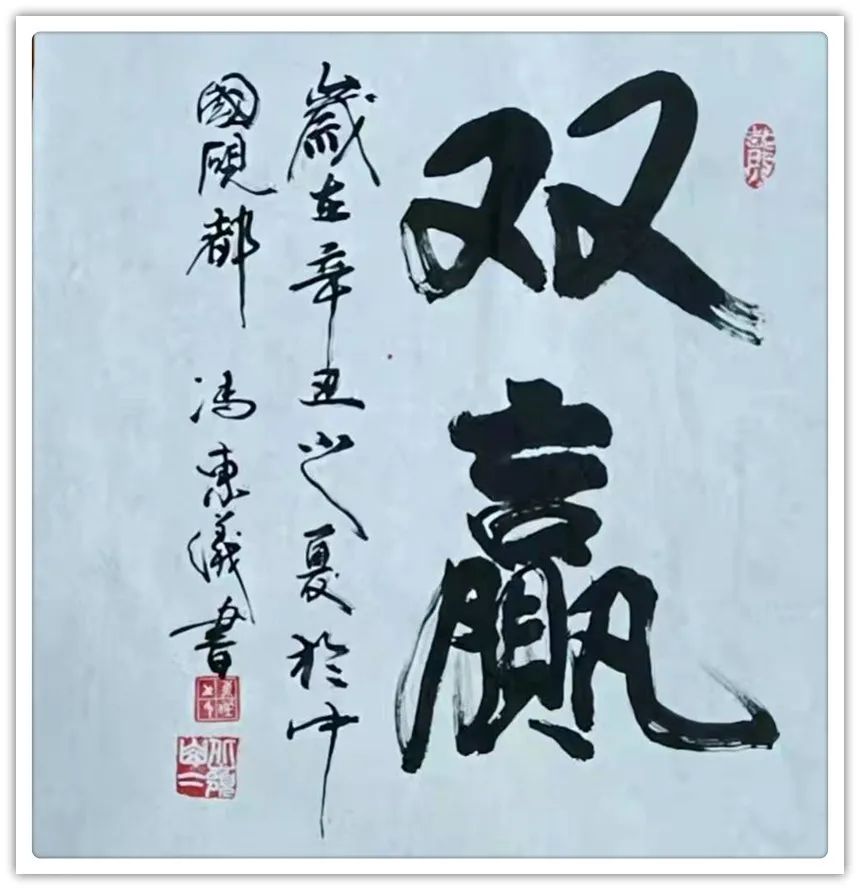 双赢
歲在辛丑之夏於中
國硯都 冯東儀書